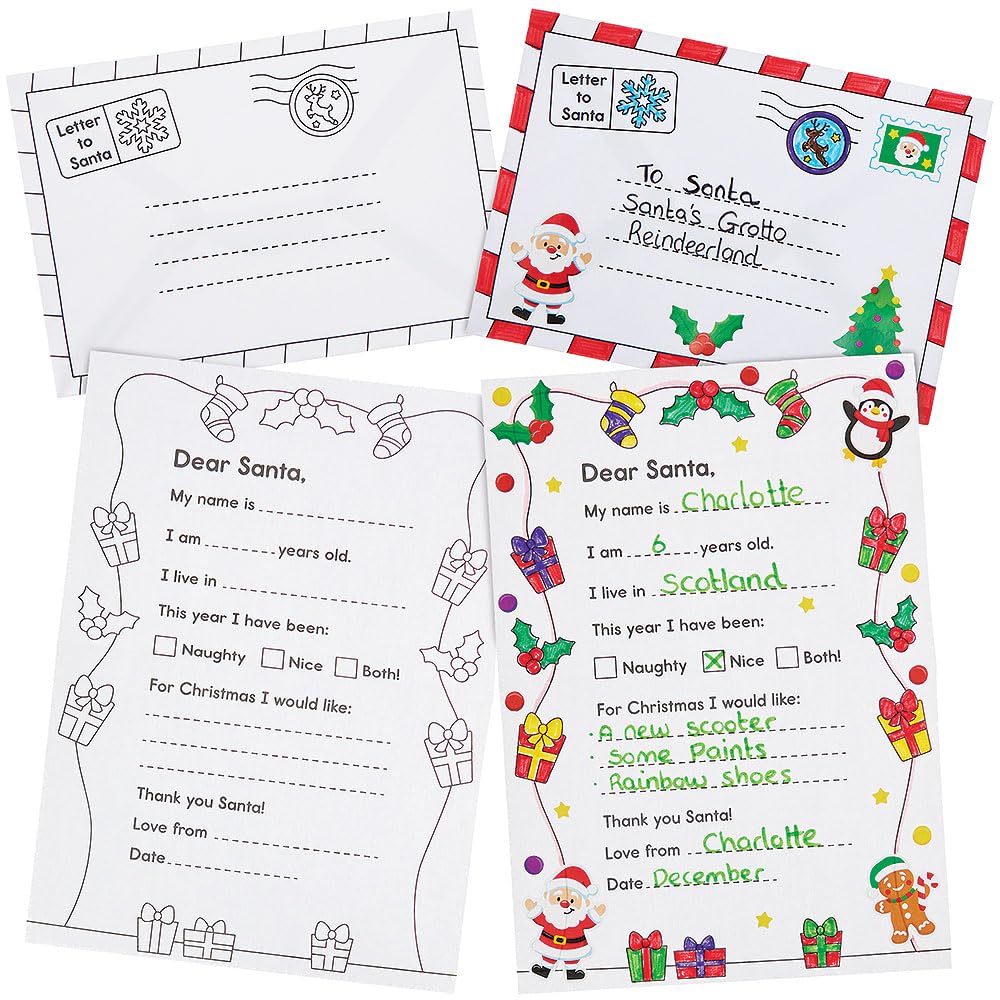 Letter
to
Santa
Letter
to
Santa
To Santa
Santa's Grotto
Reindeerland
Dear Santa,
My name is
I am years old.
I live in
This year I have been:
Naughty Nice Both!
For Christmas I would like:
Thank you Santa!
Love from
Date
Dear Santa,
My name is Charlotte
I am 6 years old.
I live in Scotland
This year I have been:
Naughty Nice Both!
For Christmas I would like:
· A new scooter
· Some Paints
· Rainbow shoes
Thank you Santa!
Love from Charlotte
Date December